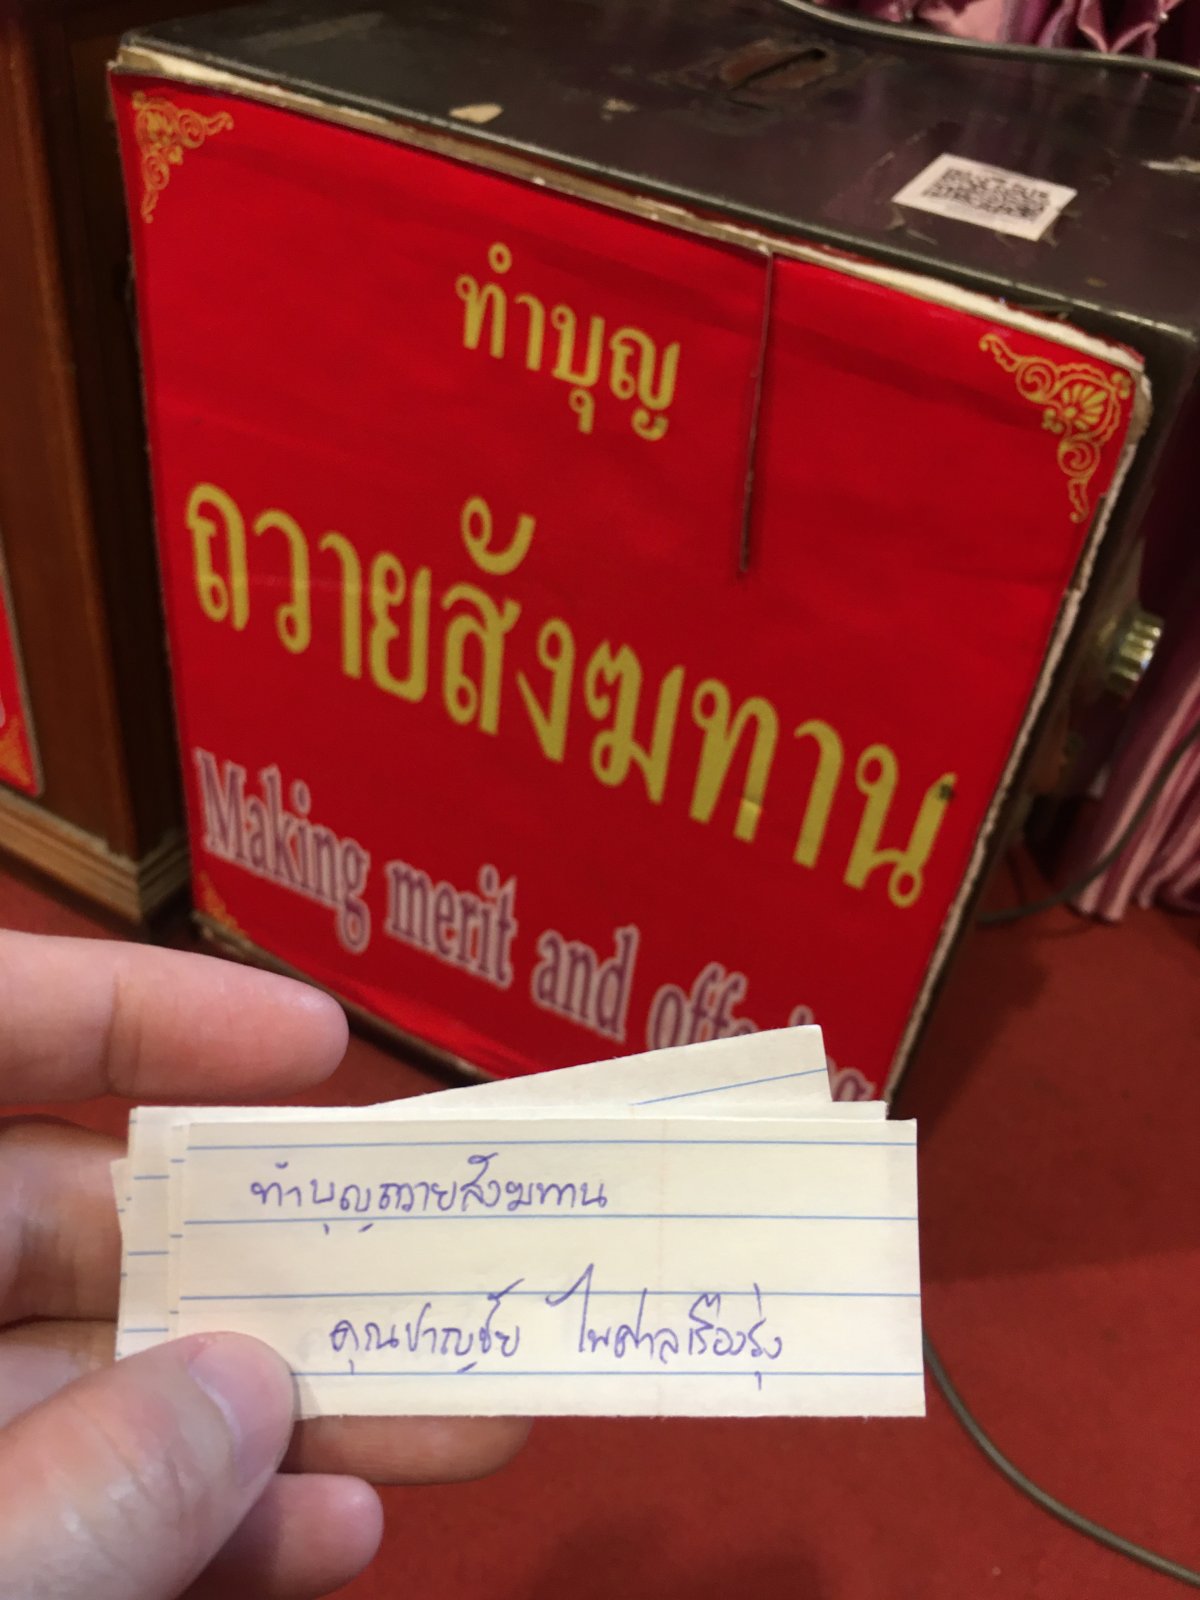 ทำบุญ
ถวายสังฆทาน
Making merit and offering
ทำบุญถวายสังฆทาน
คุณชาญชัย ไพศาลเรืองรุ่ง